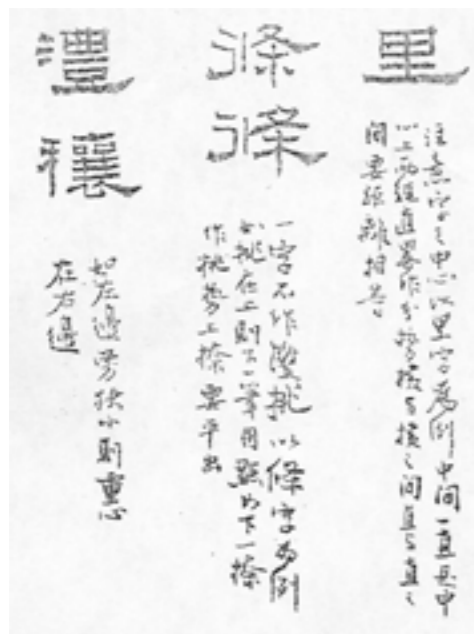 里
注意字之中心以里字為例中间一直是中
以上兩組直畫作分勢橫与橫之间直与直之
间要距離相等
條
條
一字不作雙挑以條字為例
如挑在上則下一筆用點如下一捺
作挑勢上捺要平出
穰
如左邊旁狭小則重心
在右邊